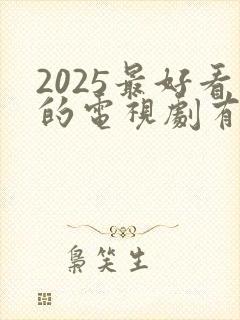 2025最好看
的電視劇有
梟笑生